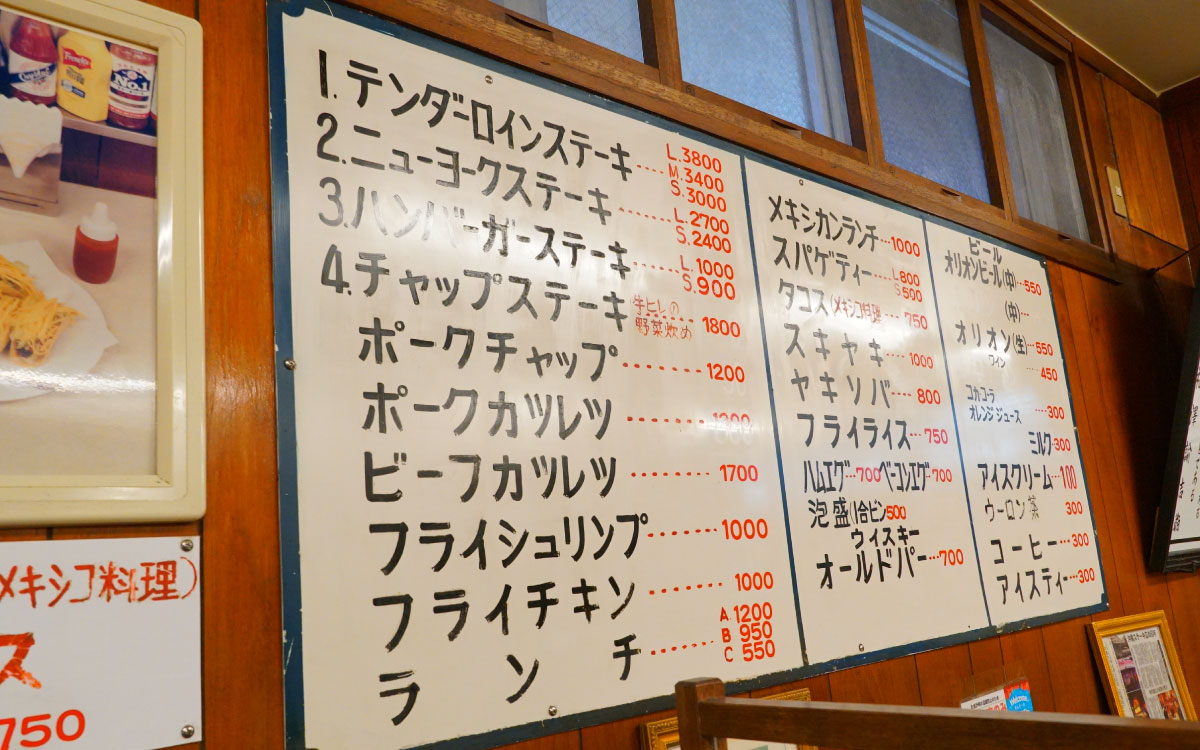 1.テンダーロインステーキ....L.3800
M.3400
S.3000
2.ニューヨークステーキ.......L.2700
S.2400
3.ハンバーガーステーキ.....L.1000
S.900
4.チャップステーキ 牛ヒレの野菜炒め 1800
ポークチャップ........1200
ポークカツレツ........
ビーフカツレツ........1700
フライシュリンプ......1000
フライチキン........1000
ランチ.......A.1200
B 950
C 550
メキシカンランチ...1000
スパゲティー...L800
S500
タコス(メキシコ料理...750
スキヤキ....1000
ヤキソバ....800
フライライス...750
ハムエグ...700 ベーコンエグ...700
泡盛(1合ビン500
ウイスキー
オールドパー...700
ビール
オリオンビール(中)...550
(中)...
オリオン(生)...550
ワイン....450
コカコーラ
オレンジジュース....300
ミルク...300
アイスクリーム...100
ウーロン茶 300
コーヒー...300
アイスティー...300
メキシコ料理)
ス
750